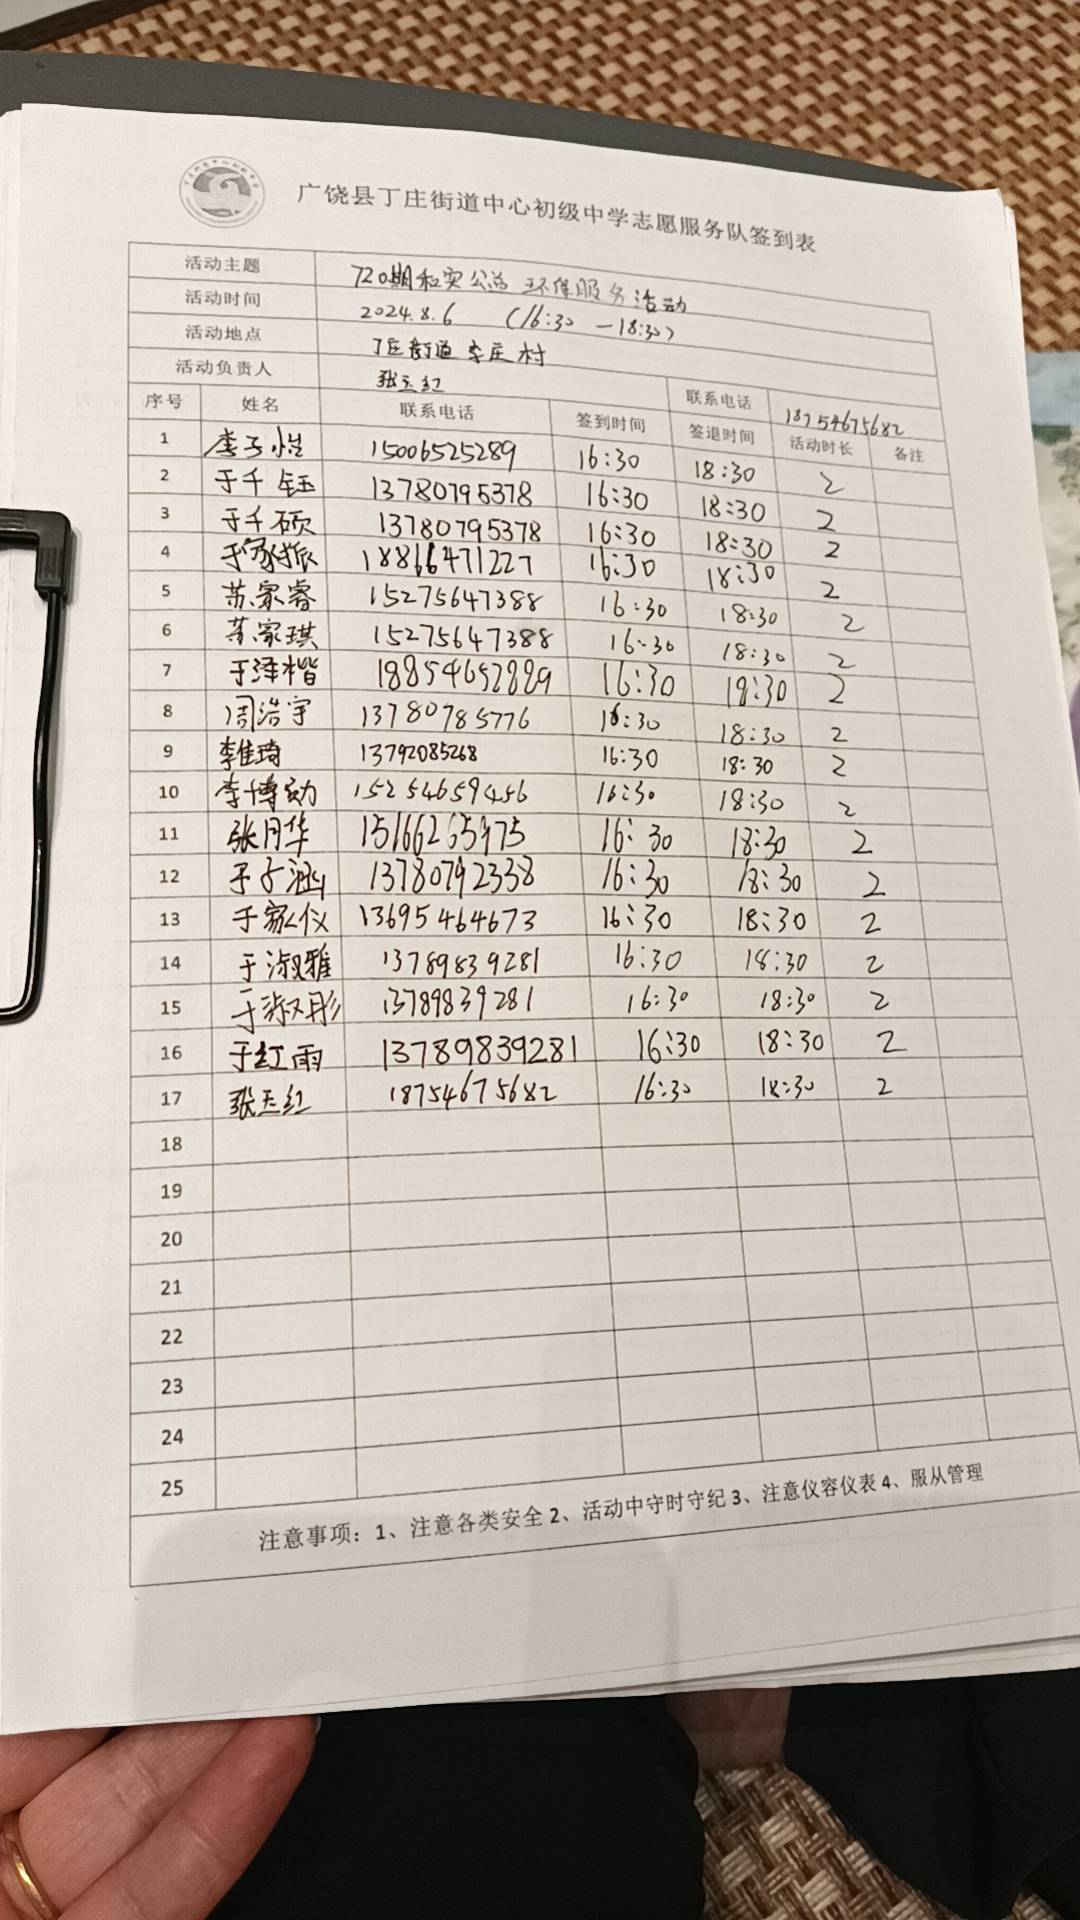 广饶县丁庄街道中心初级中学志愿服务队签到表
活动主题 720期和实公益 环保服务活动
活动时间 2024.8.6 (16:30 —18:30)
活动地点 丁庄街道 李庄村
活动负责人 张玉红 联系电话 18754675682
序号 姓名 联系电话 签到时间 签退时间 活动时长 备注
1 李子 15006525289 16:30 18:30 2
2 于千钰 13780795378 16:30 18:30 2
3 于千硕 13780795378 16:30 18:30 2
4 于家振 18866471227 16:30 18:30 2
5 苏家睿 15275647388 16:30 18:30 2
6 苏家琪 15275647388 16:30 18:30 2
7 于泽楷 18854652889 16:30 18:30 2
8 周浩宇 13780785776 16:30 18:30 2
9 李佳琦 13792085268 16:30 18:30 2
10 李博勋 15254659456 16:30 18:30 2
11 张月华 15166265975 16:30 18:30 2
12 于子涵 13780792338 16:30 18:30 2
13 于家仪 13695464673 16:30 18:30 2
14 于淑雅 13789839281 16:30 18:30 2
15 于淑彤 13789839281 16:30 18:30 2
16 于红雨 13789839281 16:30 18:30 2
17 张玉红 18754675682 16:30 18:30 2
18
19
20
21
22
23
24
25
注意事项：1、注意各类安全 2、活动中守时守纪 3、注意仪容仪表 4、服从管理